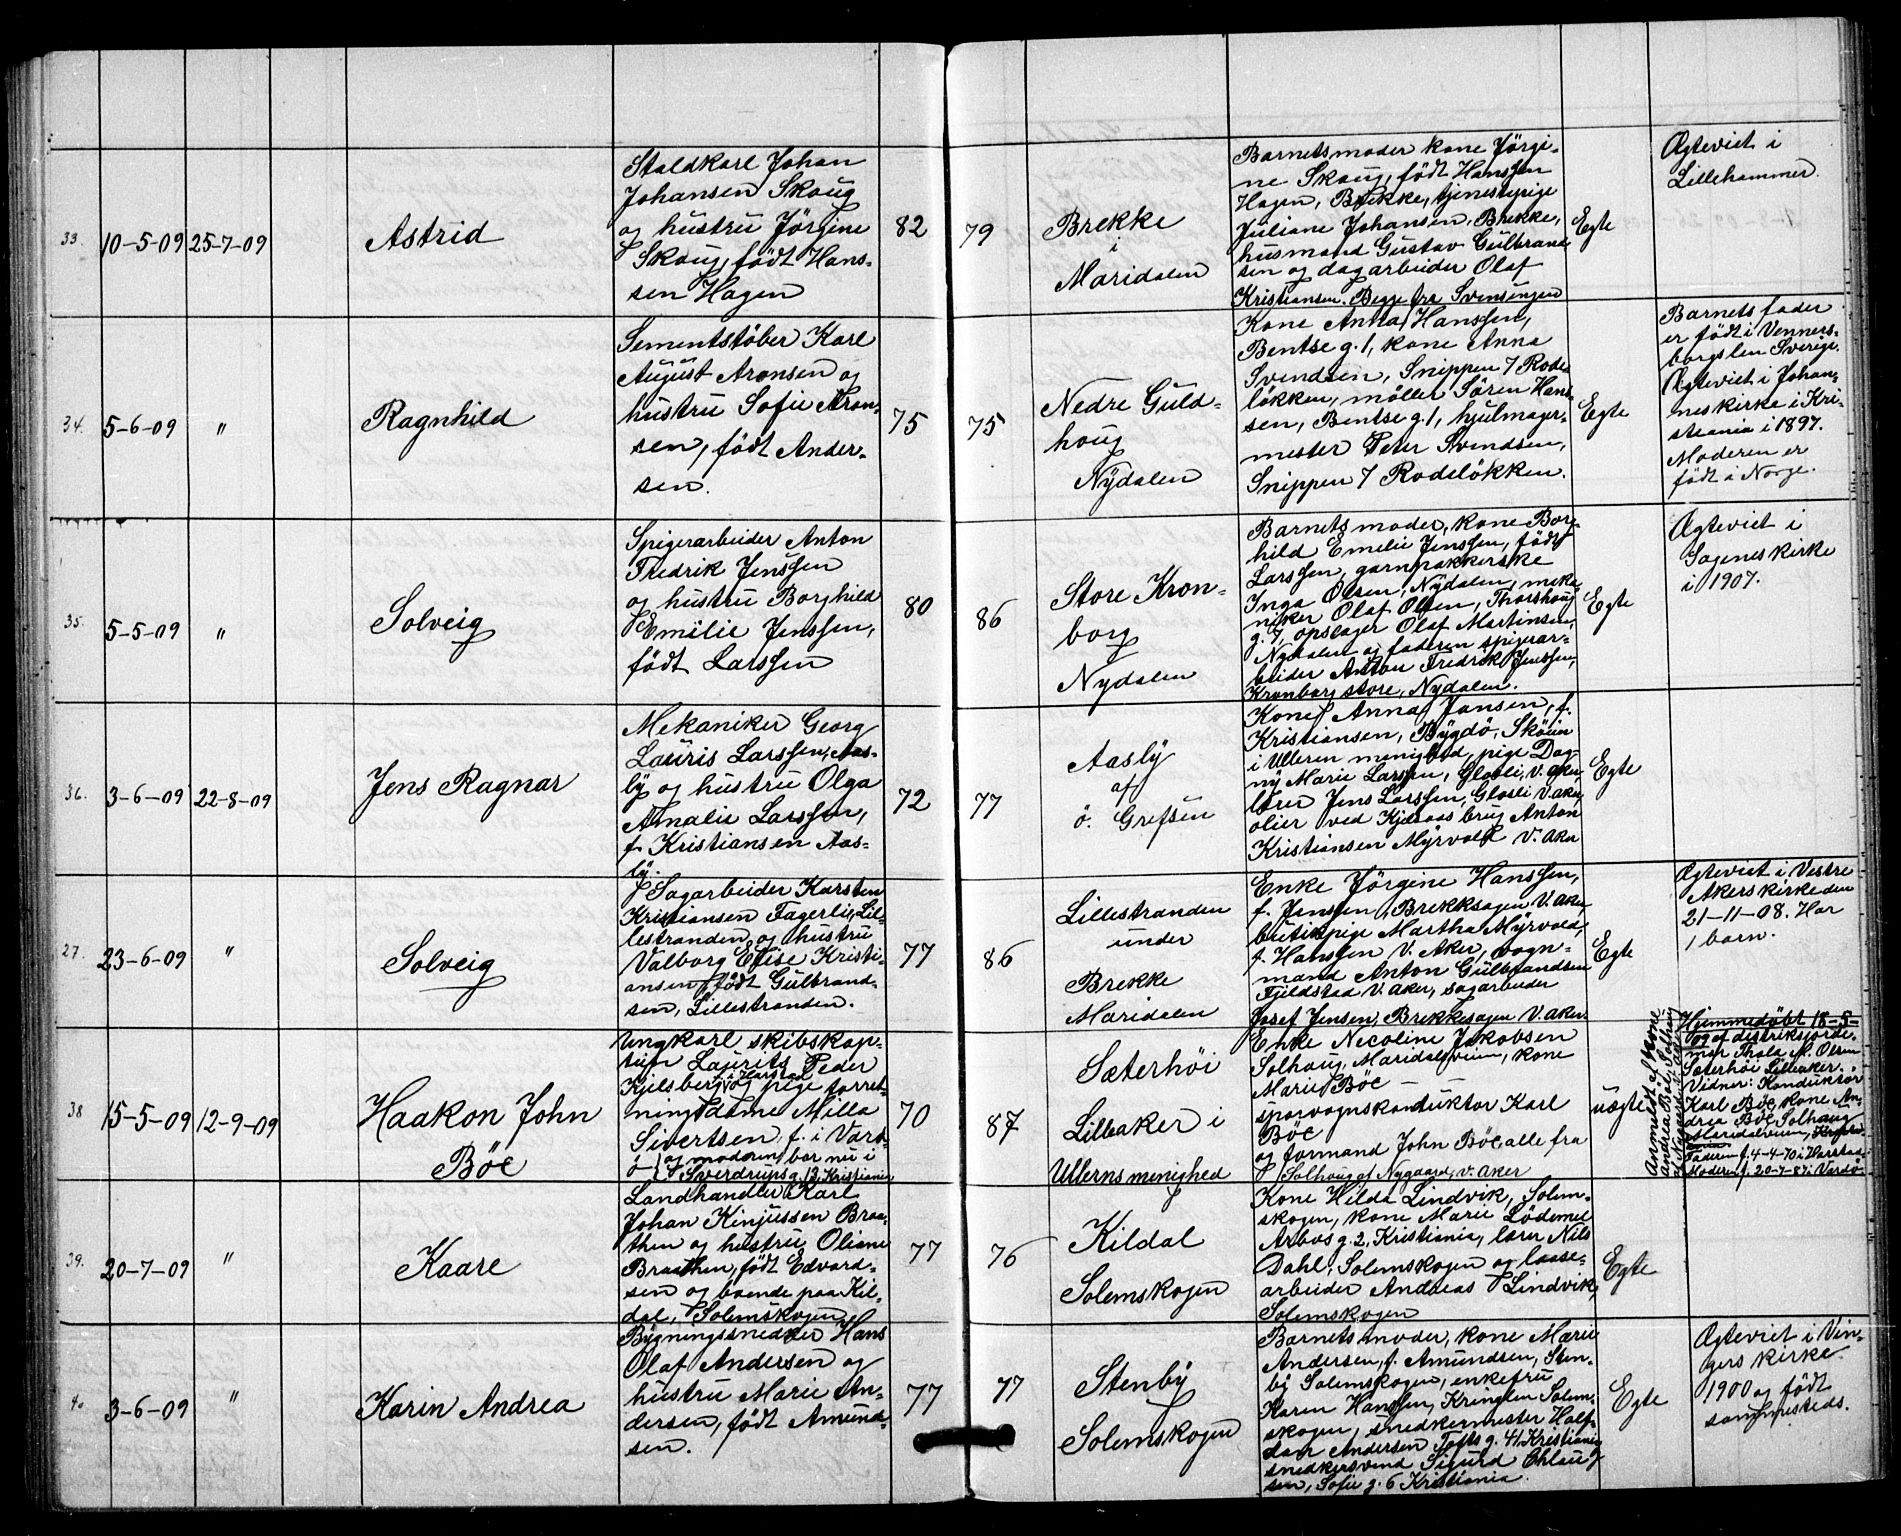 33.
10-5-09
25-7-09
Astrid
Staldkarl Johan
Johansen Skoug
og hustru Jörgine
Skoug, födt Hans-
sen Hagen
82
79
Brekke
i
Maridalen
Barnets moder kone Jörgi-
ne Skoug, födt Hanssen
Hagen, Brekke, tjenestepige
Juliane Johansen, Brekke,
husmand Gustav Gulbrand
sen og dagarbeider Olaf
Kristiansen. Begge fra Svensengen
Egte
Ægteviet i
Lillehammer.
34.
5-6-09
"
Ragnhild
Sementstöber Karl
August Aronsen og
hustru Sofie Aron-
sen, födt Ander-
sen.
75
75
Nedre Guld-
houg
Nydalen
Kone Anna Hanssen,
Bentse g. 1, kone Anna
Svendsen, Snippen 7 Rode-
lökken, möller Sören Hans-
sen, Bentse g. 1, hjulmager-
mester Peter Svendsen,
Snippen 7 Rodelökken.
Egte
Barnets fader
er födt i Venners-
borgs len Sverige.
Ægteviet i Johan-
neskirke i Kri-
stiania i 1897.
Moderen er
födt i Norge.
35.
5-5-09
"
Solveig
Spigerarbeider Anton
Fredrik Jenssen
og hustru Borghild
Emilie Jenssen,
födt Larssen
80
86
Store Kron-
borg
Nydalen
Barnets moder, kone Borg-
hild Emelie Jenssen, födt
Larssen, garnpakkerske
Inga Olsen, Nydalen, meka
niker Olaf Olsen, Thorshoug
g. 7, opslager Olaf Martinsen,
Nydalen og faderen spigerar-
beider Anton Fredrik Jenssen,
Kronborg store, Nydalen.
Egte
Ægteviet i
Sageneskirke
i 1907.
36.
3-6-09
22-8-09
Jens Ragnar
Mekaniker Georg
Lauris Larssen, Aas-
ly og hustru Olga
Amalie Larssen,
f. Kristiansen Aas-
ly.
72
77
Aasly
af
ö. Grefsen
Kone Anna Jansen, f.
Kristiansen, Bygdö, Sköien
i Ullern menighed, pige Dag-
ny Marie Larssen, Glosli, V. Aker,
lærer Jens Larssen, Glosli V. Aker,
olier ved Kjelsaas brug Anton
Kristiansen Myrvold V. Aker
Egte
27.
23-6-09
"
Solveig
Sagarbeider Karsten
Kristiansen Fagerli, Lil-
lestranden og hustru
Valborg Elise Kristi-
ansen, födt Gulbrand-
sen, Lillestranden.
77
86
Lillestranden
under
Brekke
Maridalen
Enke Jörgine Hanssen,
f. Janssen, Brekkesagen V. Aker,
butikpige Martha Myrvold,
f. Hanssen V. Aker, vogn-
mand Anton Gulbrandsen
Fjeldstad V. Aker, sagarbeider
Josef Jensen, Brekkesagen V. Aker.
Egte
Ægteviet i Vestre
Akerskirke den
21-11-08. Har
1 barn.
38
15-5-09
12-9-09
Haakon John
Böe
Ungkarl skibskap-
tein Laurits Peder
Kjelsberg i Harstad og pige forret-
ningsdame Milla
Sivertsen, f. i Vard-
ö og moderen bor nu i
Sverdrups g. 13, Kristiania
70
87
Sæterhöi
Lilleaker i
Ullerns menighed
Enke Nicoline Jakobsen
Solhaug, Maridalsveien, kone
Marie Böe — —
sporvognskonduktör Karl
Böe
og formand John Böe alle fra
Solhoug af Nygaard, V. Aker
uægte
Anmeldt af kone
Andrea Böe, Solhoug
Hjemmedöbt 18-5-
09 af distriksjorde-
mor Thola M. Olsen
Sæterhöi Lilleaker.
Vidner: Konduktör
Karl Böe, kone An-
drea Böe, Solhaug
Maridalsveien,
Faderen f. 4-4-70 i Harstad
Moderen f. 20-7-87 i Vardö
39.
20-7-09
"
Kaare
Landhandler Karl
Johan Kinjussen Braa-
then og hustru Oliane
Braathen, födt Edvard-
sen og boende paa Kil-
dal, Solemskogen
77
76
Kildal
Solemskogen
Kone Hilda Lindvik, Solem-
skogen, kone Marie Lödemel
Arbos g. 2, Kristiania, lærer Nils
Dahl, Solemskogen og laase-
arbeider Andreas Lindvik,
Solemskogen
Egte
40
3-6-09
"
Karin Andrea
Bygningssnedker Hans
Olaf Andersen og
hustru Marie An-
dersen, födt Amund-
sen.
77
77
Stenby
Solemskogen
Barnets moder, kone Marie
Andersen, f. Amundsen, Sten-
by Solemskogen, enkefru
Karen Hanssen, Kringlen Solem-
skogen, snedkermester Half-
dan Andersen Tofts g. 41, Kristiania
snedkersvend Sigurd Ohlau-
sen, Sofie g. 6 Kristiania.
Egte
Ægteviet i Vin-
gers kirke.
1900 og födt
sammesteds.